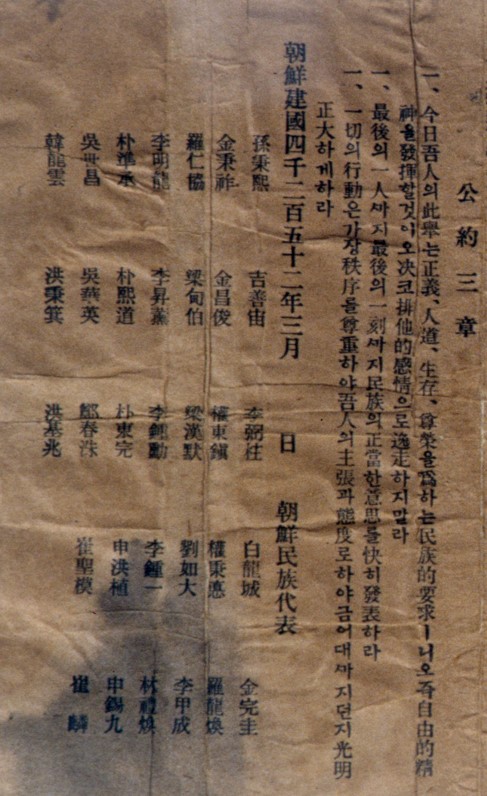 公約三章
一、今日吾人의此擧는正義、人道、生存、尊榮을爲하는民族的要求ㅣ니오즉自由的精
神을發揮할것이오決코排他的感情으로逸走하지말라
一、最後의一人ᄭᅡ지最後의一刻ᄭᅡ지民族의正當한意思를快히發表하라
一、一切의行動은가장秩序를尊重하야吾人의主張과態度로하야금어대ᄭᅡ지던지光明
正大하게하라
朝鮮建國四千二百五十二年三月 日 朝鮮民族代表
孫秉熙 吉善宙 李弼柱 白龍城 金完圭
金秉祚 金昌俊 權東鎭 權秉悳 羅龍煥
羅仁協 梁甸伯 梁漢默 劉如大 李甲成
李明龍 李昇薰 李鍾勳 李鍾一 林禮煥
朴準承 朴熙道 朴東完 申洪植 申錫九
吳世昌 吳華英 鄭春洙 崔聖模 崔麟
韓龍雲 洪秉箕 洪基兆